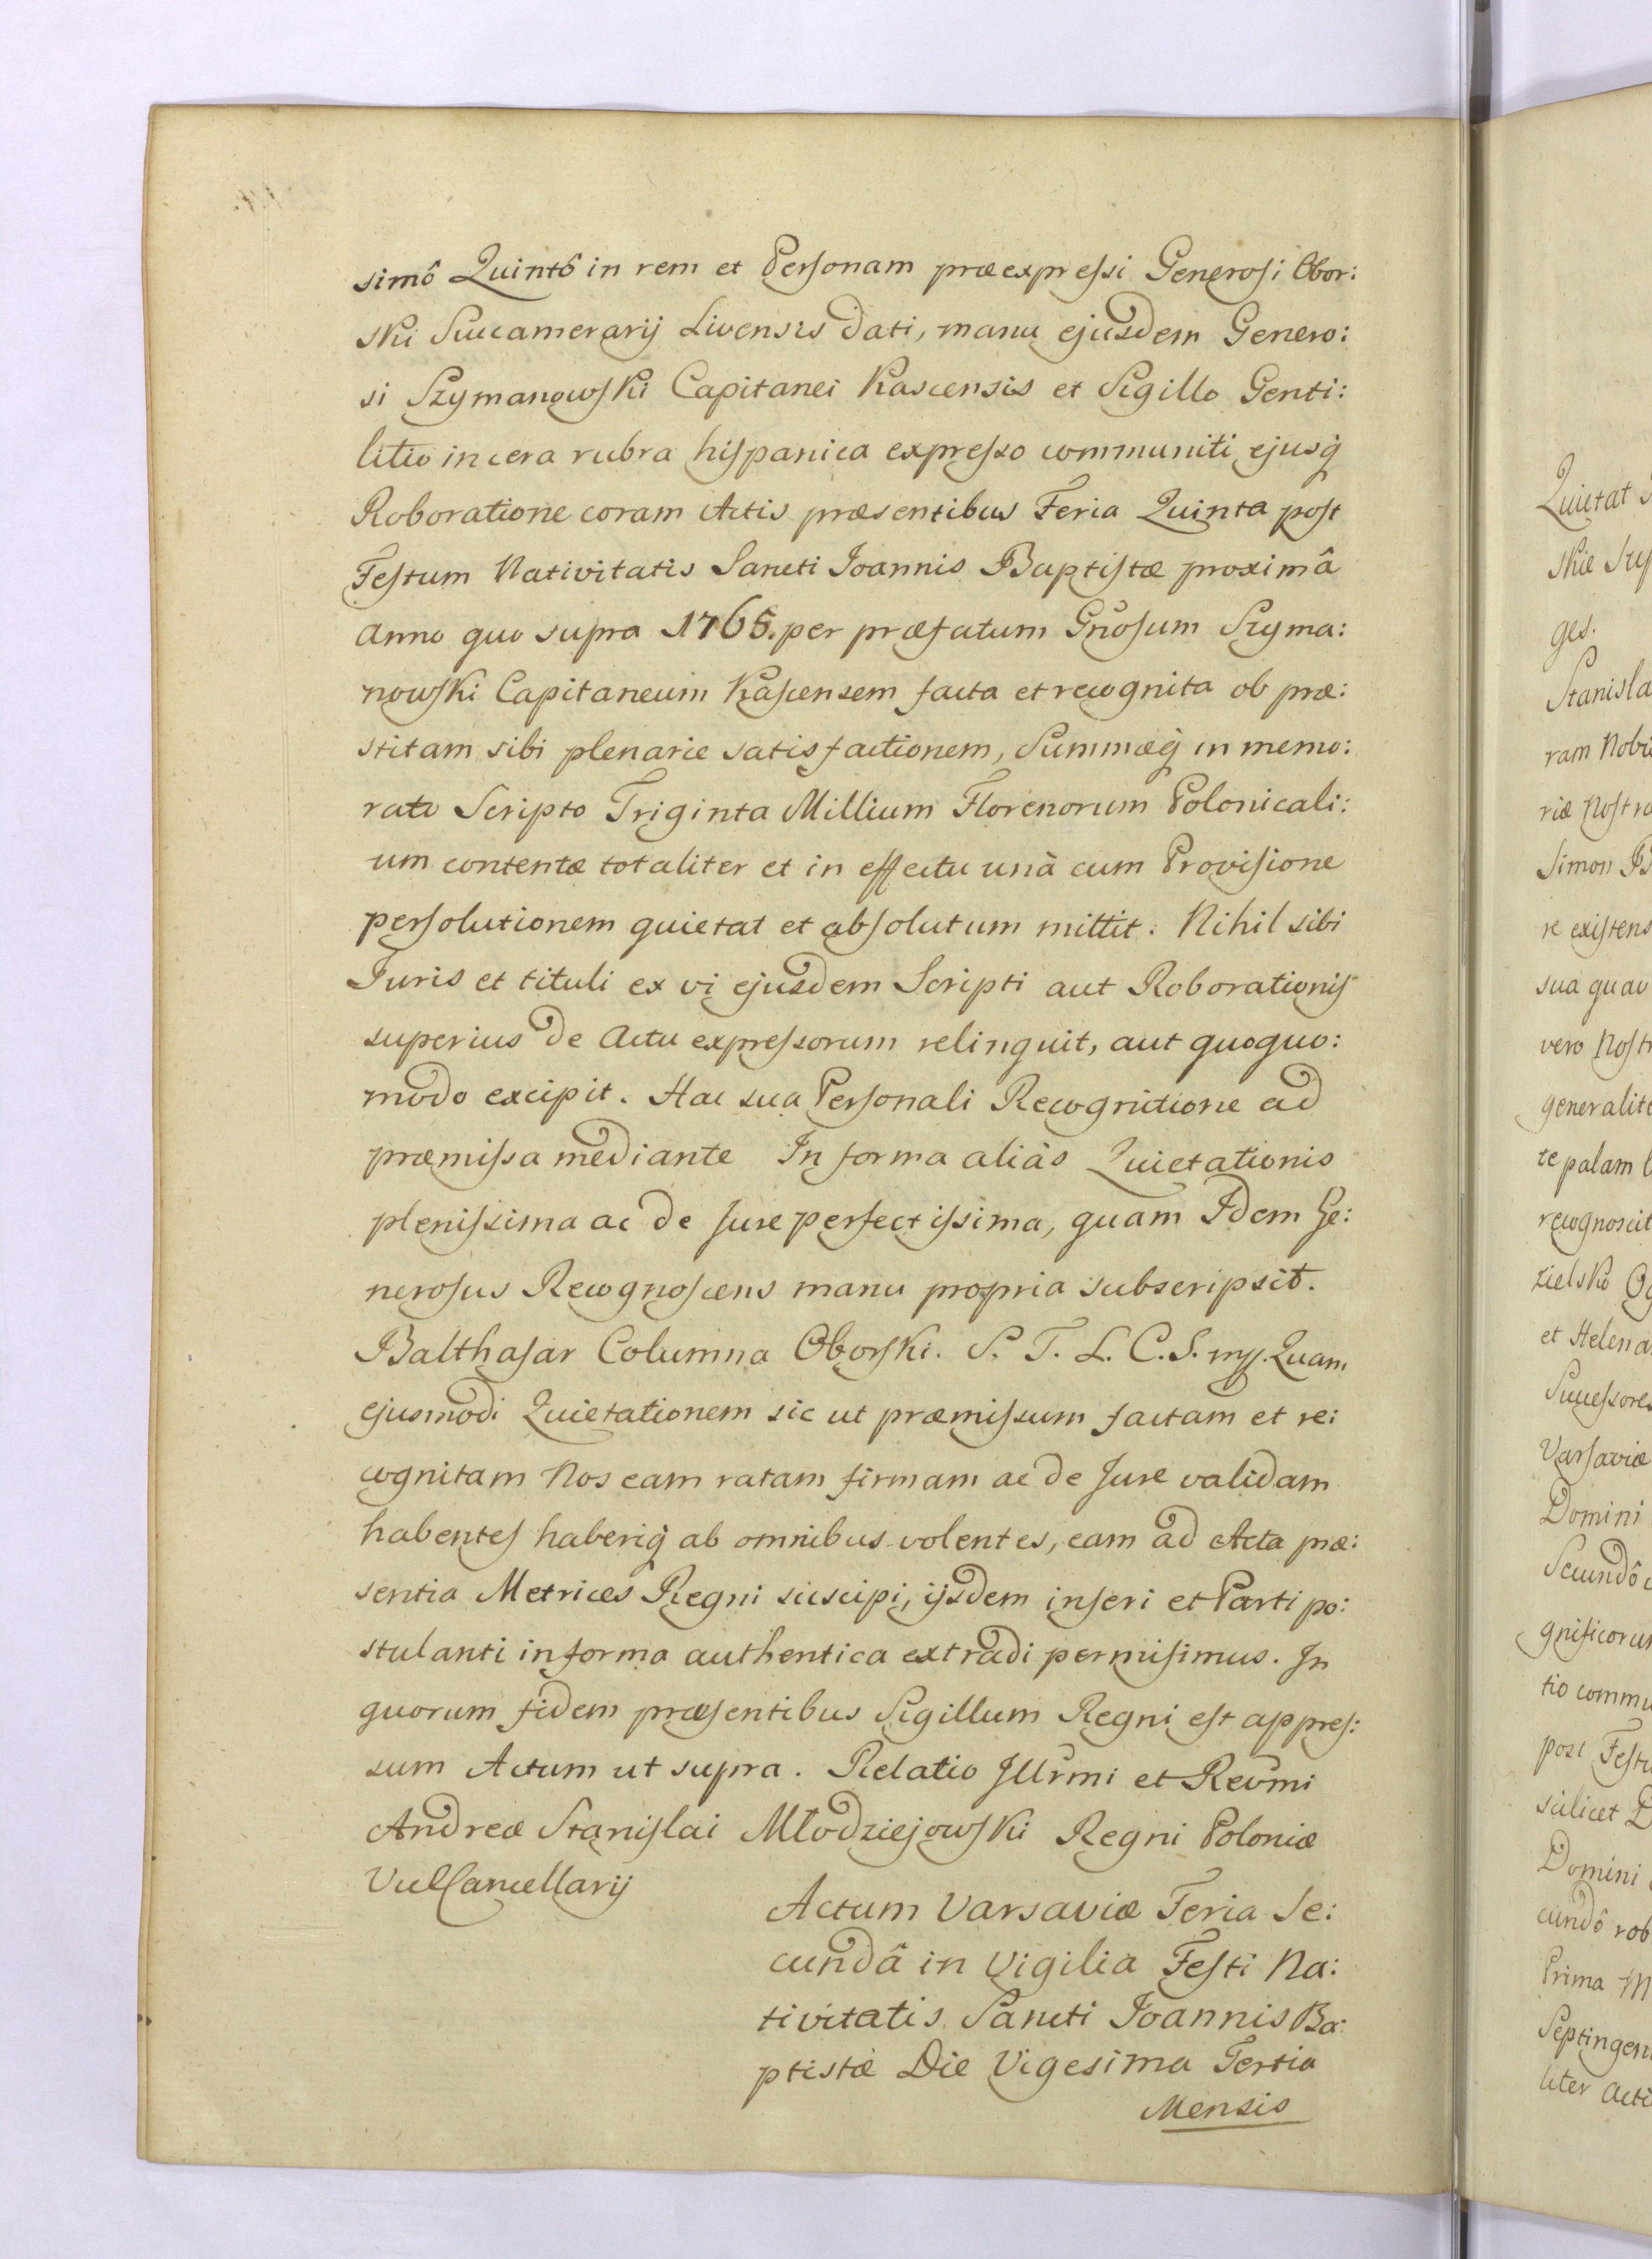 simô Quintô in rem et Personam præexpressi Generosi Obor:
ski Succamerarij Livensis dati, manu ejusdem Genero:
si Szymanowski Capitanei Rascensis et Sigillo Genti:
litio in cera rubra hispanica expresso communiti ejusq́
Roboratione coram Actis præsentibus Feria Quinta post
Festum Nativitatis Sancti Joannis Baptistæ proximâ
anno quo supra 1765. per præfatum Gnosum Szyma:
nowski Capitaneum Rascensem facta et recognita ob præ:
stitam sibi plenarie satisfactionem, Summæq́ in memo:
rato Scripto Triginta Millium Florenorum Polonicali:
um contentæ totaliter et in effectu unà cum Provisione
persolutionem quietat et absolutum mittit. Nihil sibi
Juris et tituli ex vi ejusdem Scripti aut Roborationis
superius de Actu expressorum relinquit, aut quoquo:
modo excipit. Hac sua Personali Recognitione ad
præmissa mediante In forma aliàs Quietationis
plenissima ac de Jure perfectissima, quam Idem Ge:
nerosus Recognoscens manu propria subscripsit.
Balthasar Columna Oborski. P. T. L. C. S. mp. Quam
ejusmodi Quietationem sic ut præmissum factam et re:
cognitam Nos eam ratam firmam ac de Jure validam
habentes haberiq́ ab omnibus volentes, eam ad Acta præ:
sentia Metrices Regni suscipi, ijsdem inseri et Parti po:
stulanti in forma authentica extradi permisimus. In
quorum fidem præsentibus Sigillum Regni est appres:
sum Actum ut supra. Relatio Illrmi et Revmi
Andreæ Stanislai Młodziejowski Regni Poloniæ
ViceCancellarij
Actum Varsaviæ Feria Se:
cundâ in Vigilia Festi Na:
tivitatis Sancti Joannis Ba:
ptistæ Die Vigesima Tertia
Mensis
Quietat
skie
ges.
ram
riæ
Simon
re existens
sua
vero
te palam
recognoscit
zielsko
et
Successores
Varsaviæ
Domini
Secundô
tio
post
scilicet
Domini
cundô
Prima